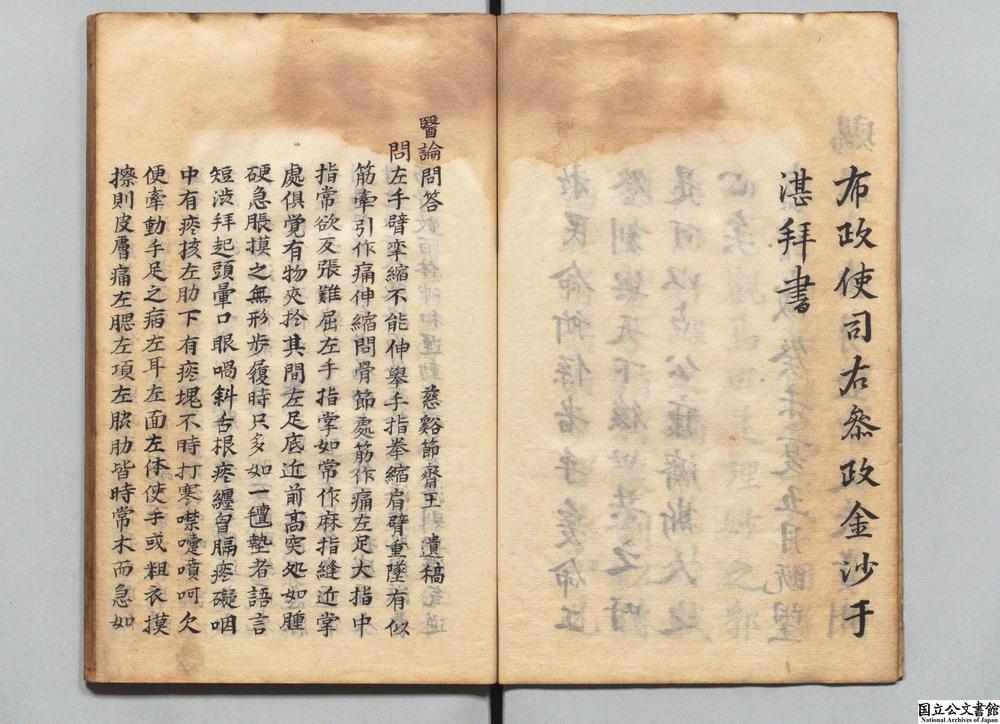 布政使司右叅政金沙于
湛拜書
醫論問答
慈谿節齋王 遺稿
問左手臂孿縮不能伸舉手指拳縮肩臂重墜有似
筋牽引作痛伸縮問骨節處筋作痛左足大指中
指常欲反張難屈左手指掌如常作麻指縫近掌
處俱覺有物夾扵其間左足底近前高突処如腫
硬急脹摸之無形步履時只多如一氊墊者語言
短澁拜起頭暈口眼喎斜舌根疙纏胷膈疙礙咽
中有疙核左肋下有疙塊不時打寒噤嚏噴呵欠
便牽動手足之病左耳左面左体使手或粗衣摸
擦則皮膚痛左腮左項左肋皆時常木而急如
国立公文書館
National Archives of Japan